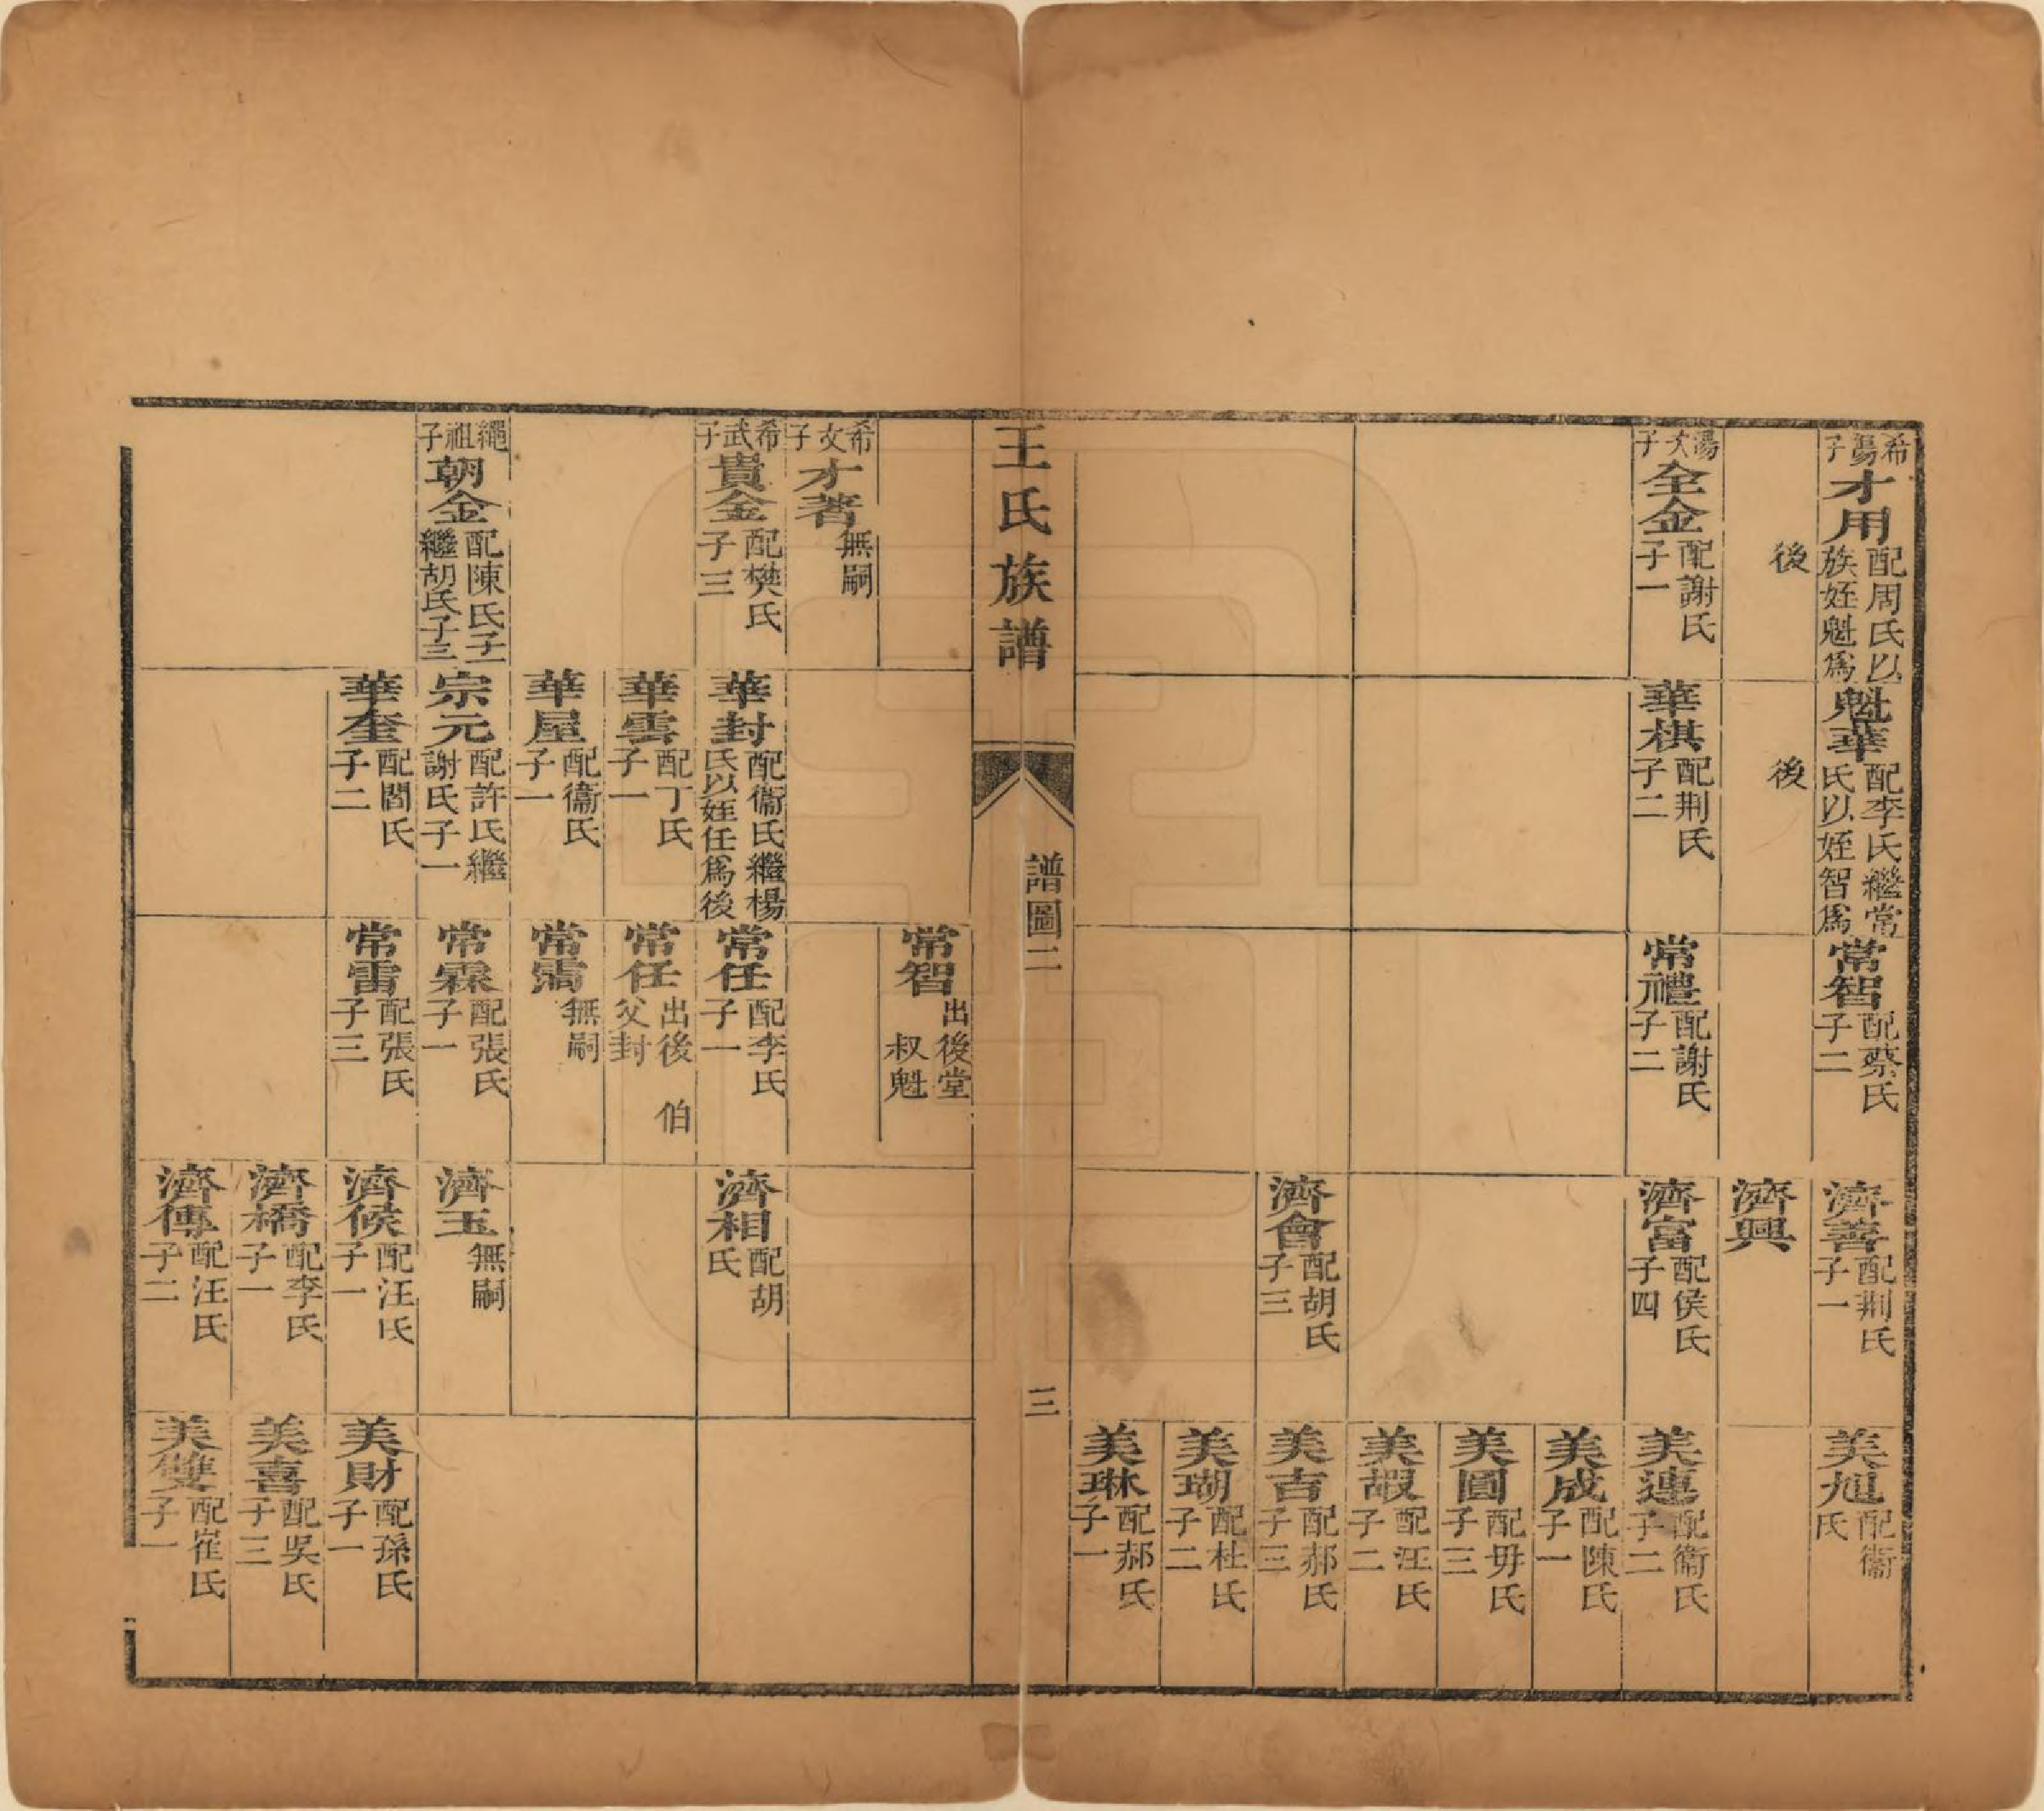 希湯子
才用
配周氏以
族姪魁爲
後
魁華
配李氏繼常
氏以姪智爲
後
常智
配蔡氏
子二
濟善
配荆氏
子一
美旭
配衞
氏
濟興
湯次子
全金
配謝氏
子一
華棋
配荆氏
子二
常禮
配謝氏
子二
濟富
配侯氏
子四
美連
配衞氏
子二
美成
配陳氏
子一
美圓
配毋氏
子三
美嘏
配汪氏
子二
濟會
配胡氏
子三
美吉
配郝氏
子三
美瑚
配杜氏
子二
美琳
配郝氏
子一
王氏族譜
譜圖二
三
常智
出後堂
叔魁
希文子
才著
無嗣
希武子
貴金
配樊氏
子三
華封
配衞氏繼楊
氏以姪任爲後
常任
配李氏
子一
濟相
配胡
氏
華雲
配丁氏
子一
常任
出後 伯
父封
華屋
配衞氏
子一
常
無嗣
繩祖子
朝金
配陳氏子一
繼胡氏子三
宗元
配許氏繼
謝氏子一
常霖
配張氏
子一
濟玉
無嗣
華奎
配閻氏
子二
常雷
配張氏
子三
濟候
配汪氏
子一
美財
配孫氏
子一
濟橋
配李氏
子一
美喜
配吳氏
子三
濟傳
配汪氏
子二
美雙
配崔氏
子一